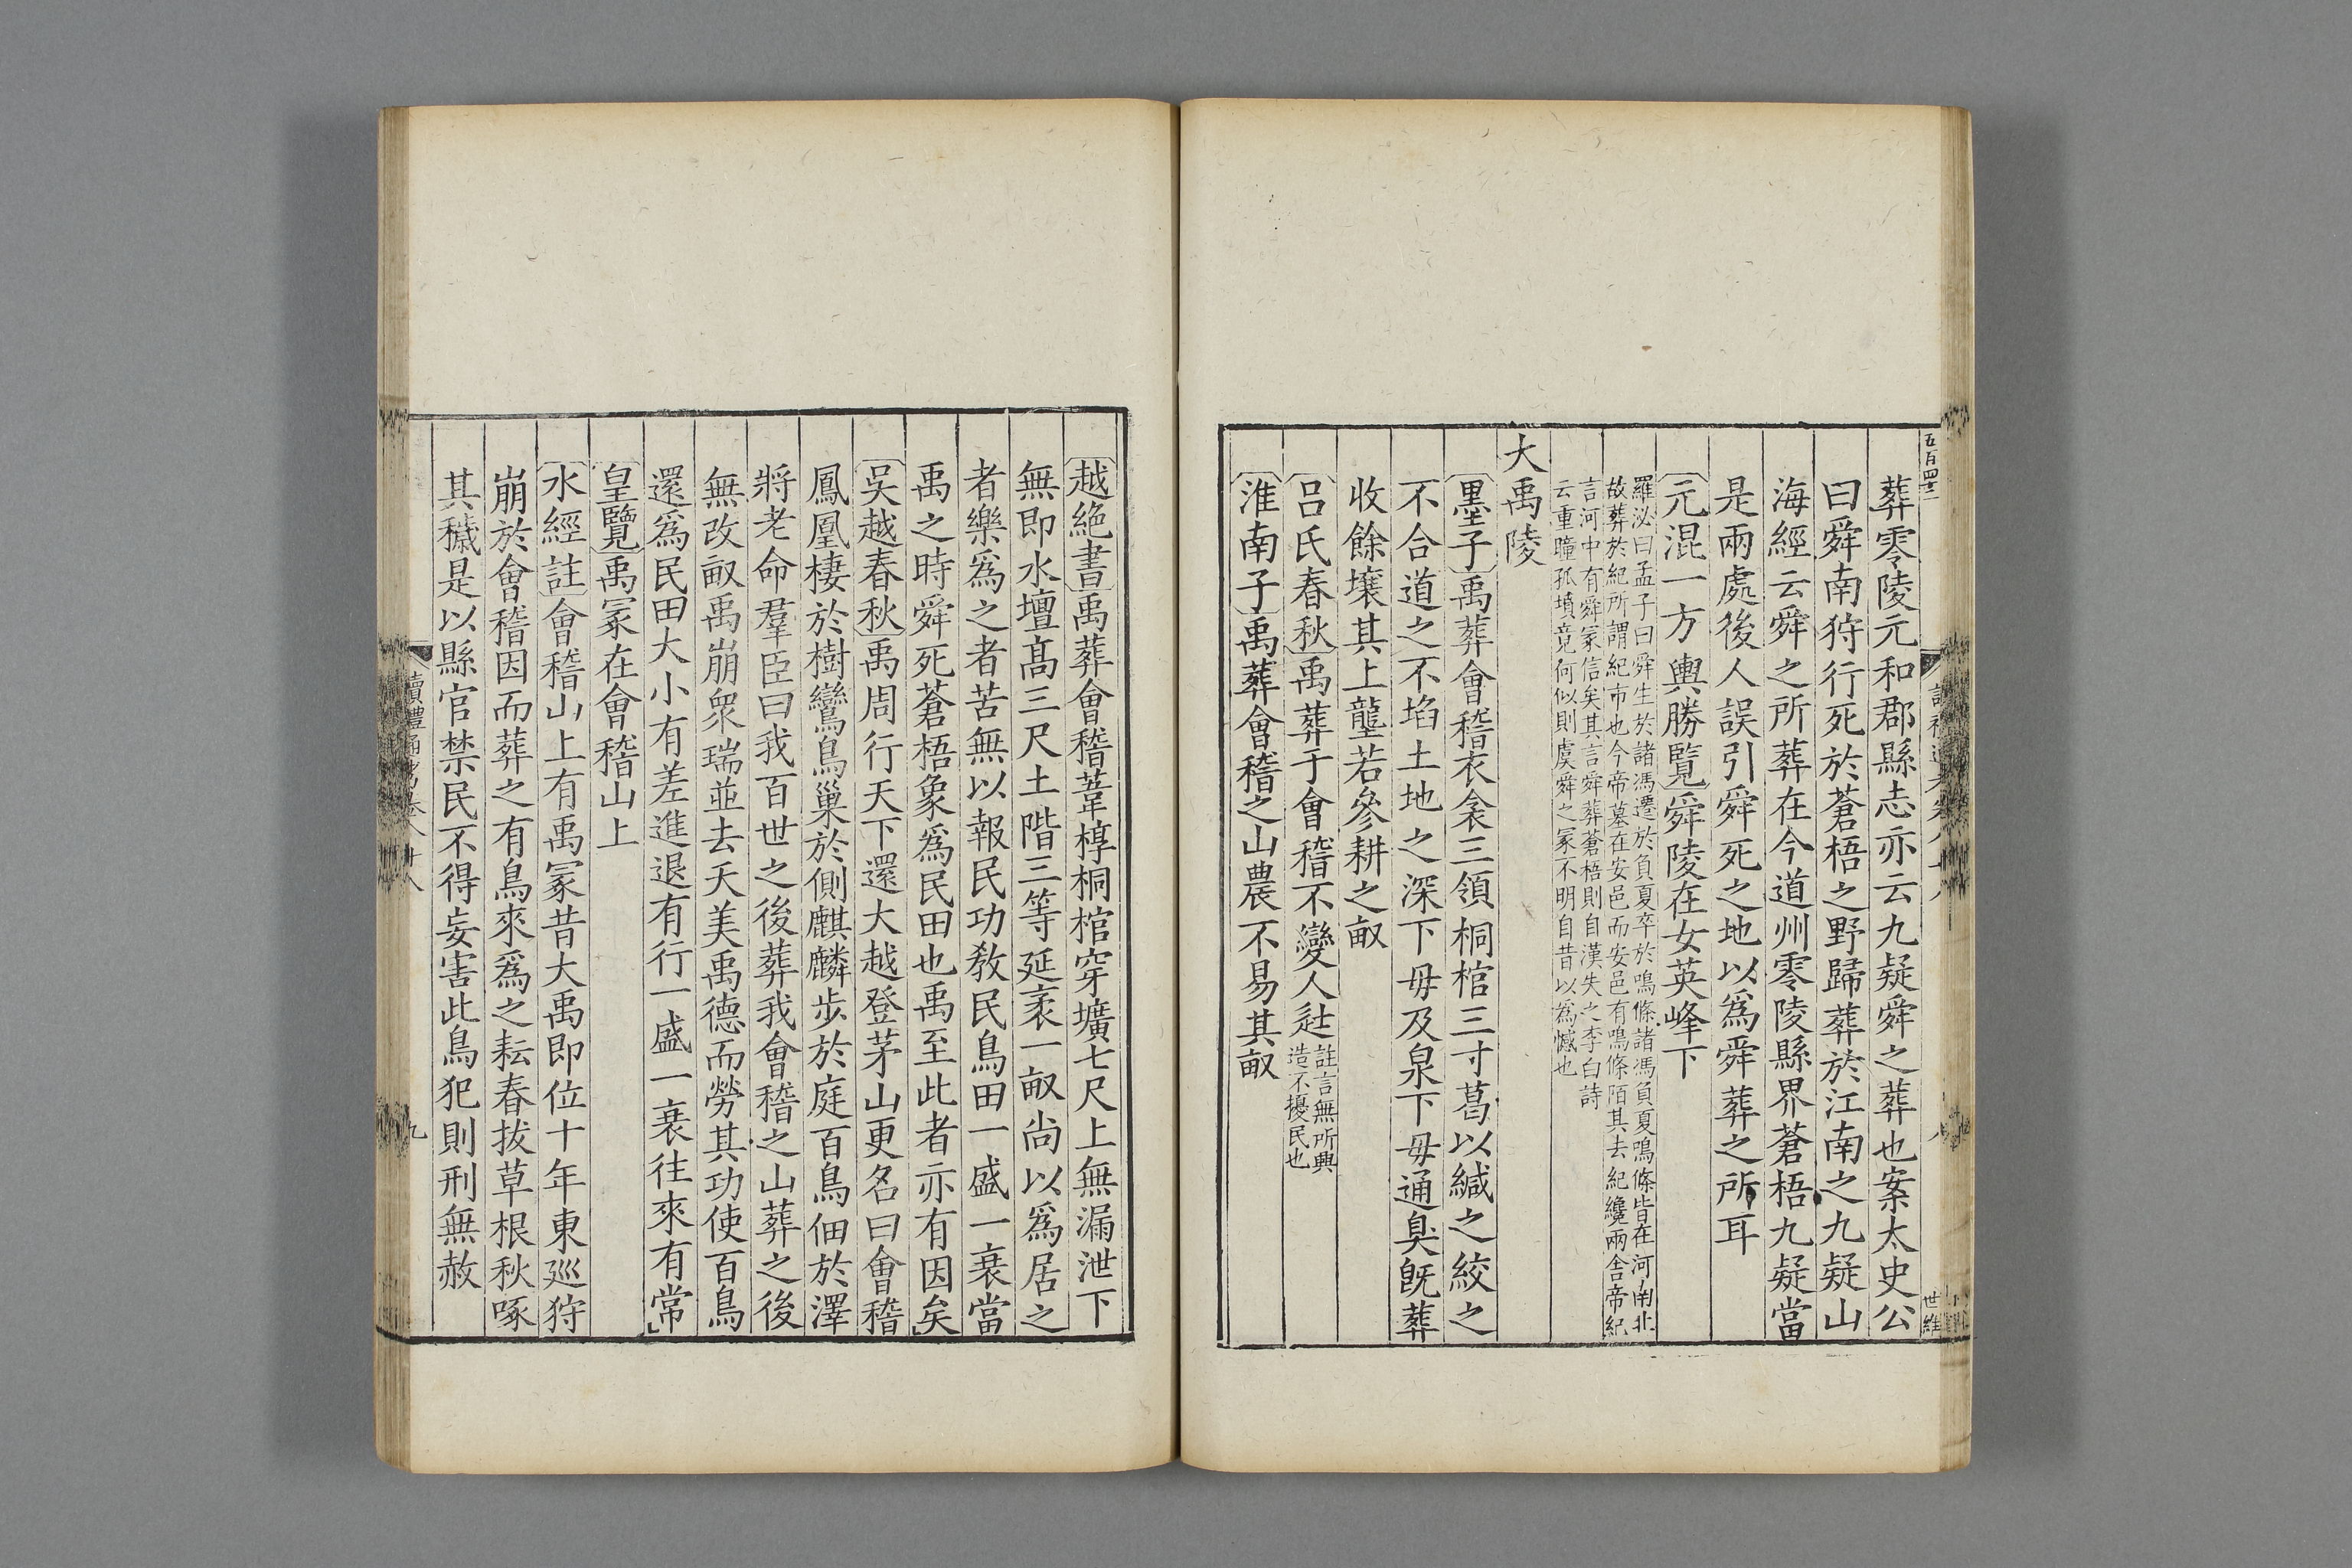 五百四十三
葬零陵元和郡縣志亦云九疑舜之葬也案太史公
曰舜南狩行死於蒼梧之野歸葬於江南之九疑山
海經云舜之所葬在今道州零陵縣界蒼梧九疑當
是兩處後人誤引舜死之地以為舜葬之所耳
元混一方輿勝覽舜陵在女英峰下
羅泌曰孟子曰舜生於諸馮遷於負夏卒於鳴條諸馮負夏鳴條皆在河南北
故葬於紀所謂紀市也今帝墓在安邑而安邑有鳴條陌其去紀纔兩舍帝紀
言河中有舜冢信矣其言舜葬蒼梧則自漢失之李白詩
云重瞳孤墳竟何似則虞舜之冢不明自昔以為憾也
大禹陵
墨子禹葬會稽衣衾三領桐棺三寸葛以緘之絞之
不合道之不埳土地之深下毋及泉下毋通臭旣葬
收餘壤其上壟若參耕之畝
呂氏春秋禹葬于會稽不變人迣註言無所興
造不擾民也
淮南子禹葬會稽之山農不易其畝
世維
越絶書禹葬會稽葦椁桐棺穿壙七尺上無漏泄下
無即水壇髙三尺土階三等延袤一畝尚以為居之
者樂為之者苦無以報民功敎民鳥田一盛一衰當
禹之時舜死蒼梧象為民田也禹至此者亦有因矣
吳越春秋禹周行天下還大越登茅山更名曰會稽
鳳凰棲於樹鸞鳥巢於側麒麟步於庭百鳥佃於澤
將老命羣臣曰我百世之後葬我會稽之山葬之後
無改畝禹崩衆瑞並去天美禹德而勞其功使百鳥
還爲民田大小有差進退有行一盛一衰往來有常
皇覽禹冢在會稽山上
水經註會稽山上有禹冢昔大禹即位十年東巡狩
崩於會稽因而葬之有鳥來爲之耘春拔草根秋啄
其穢是以縣官禁民不得妄害此鳥犯則刑無赦
讀禮通考卷八十八
九